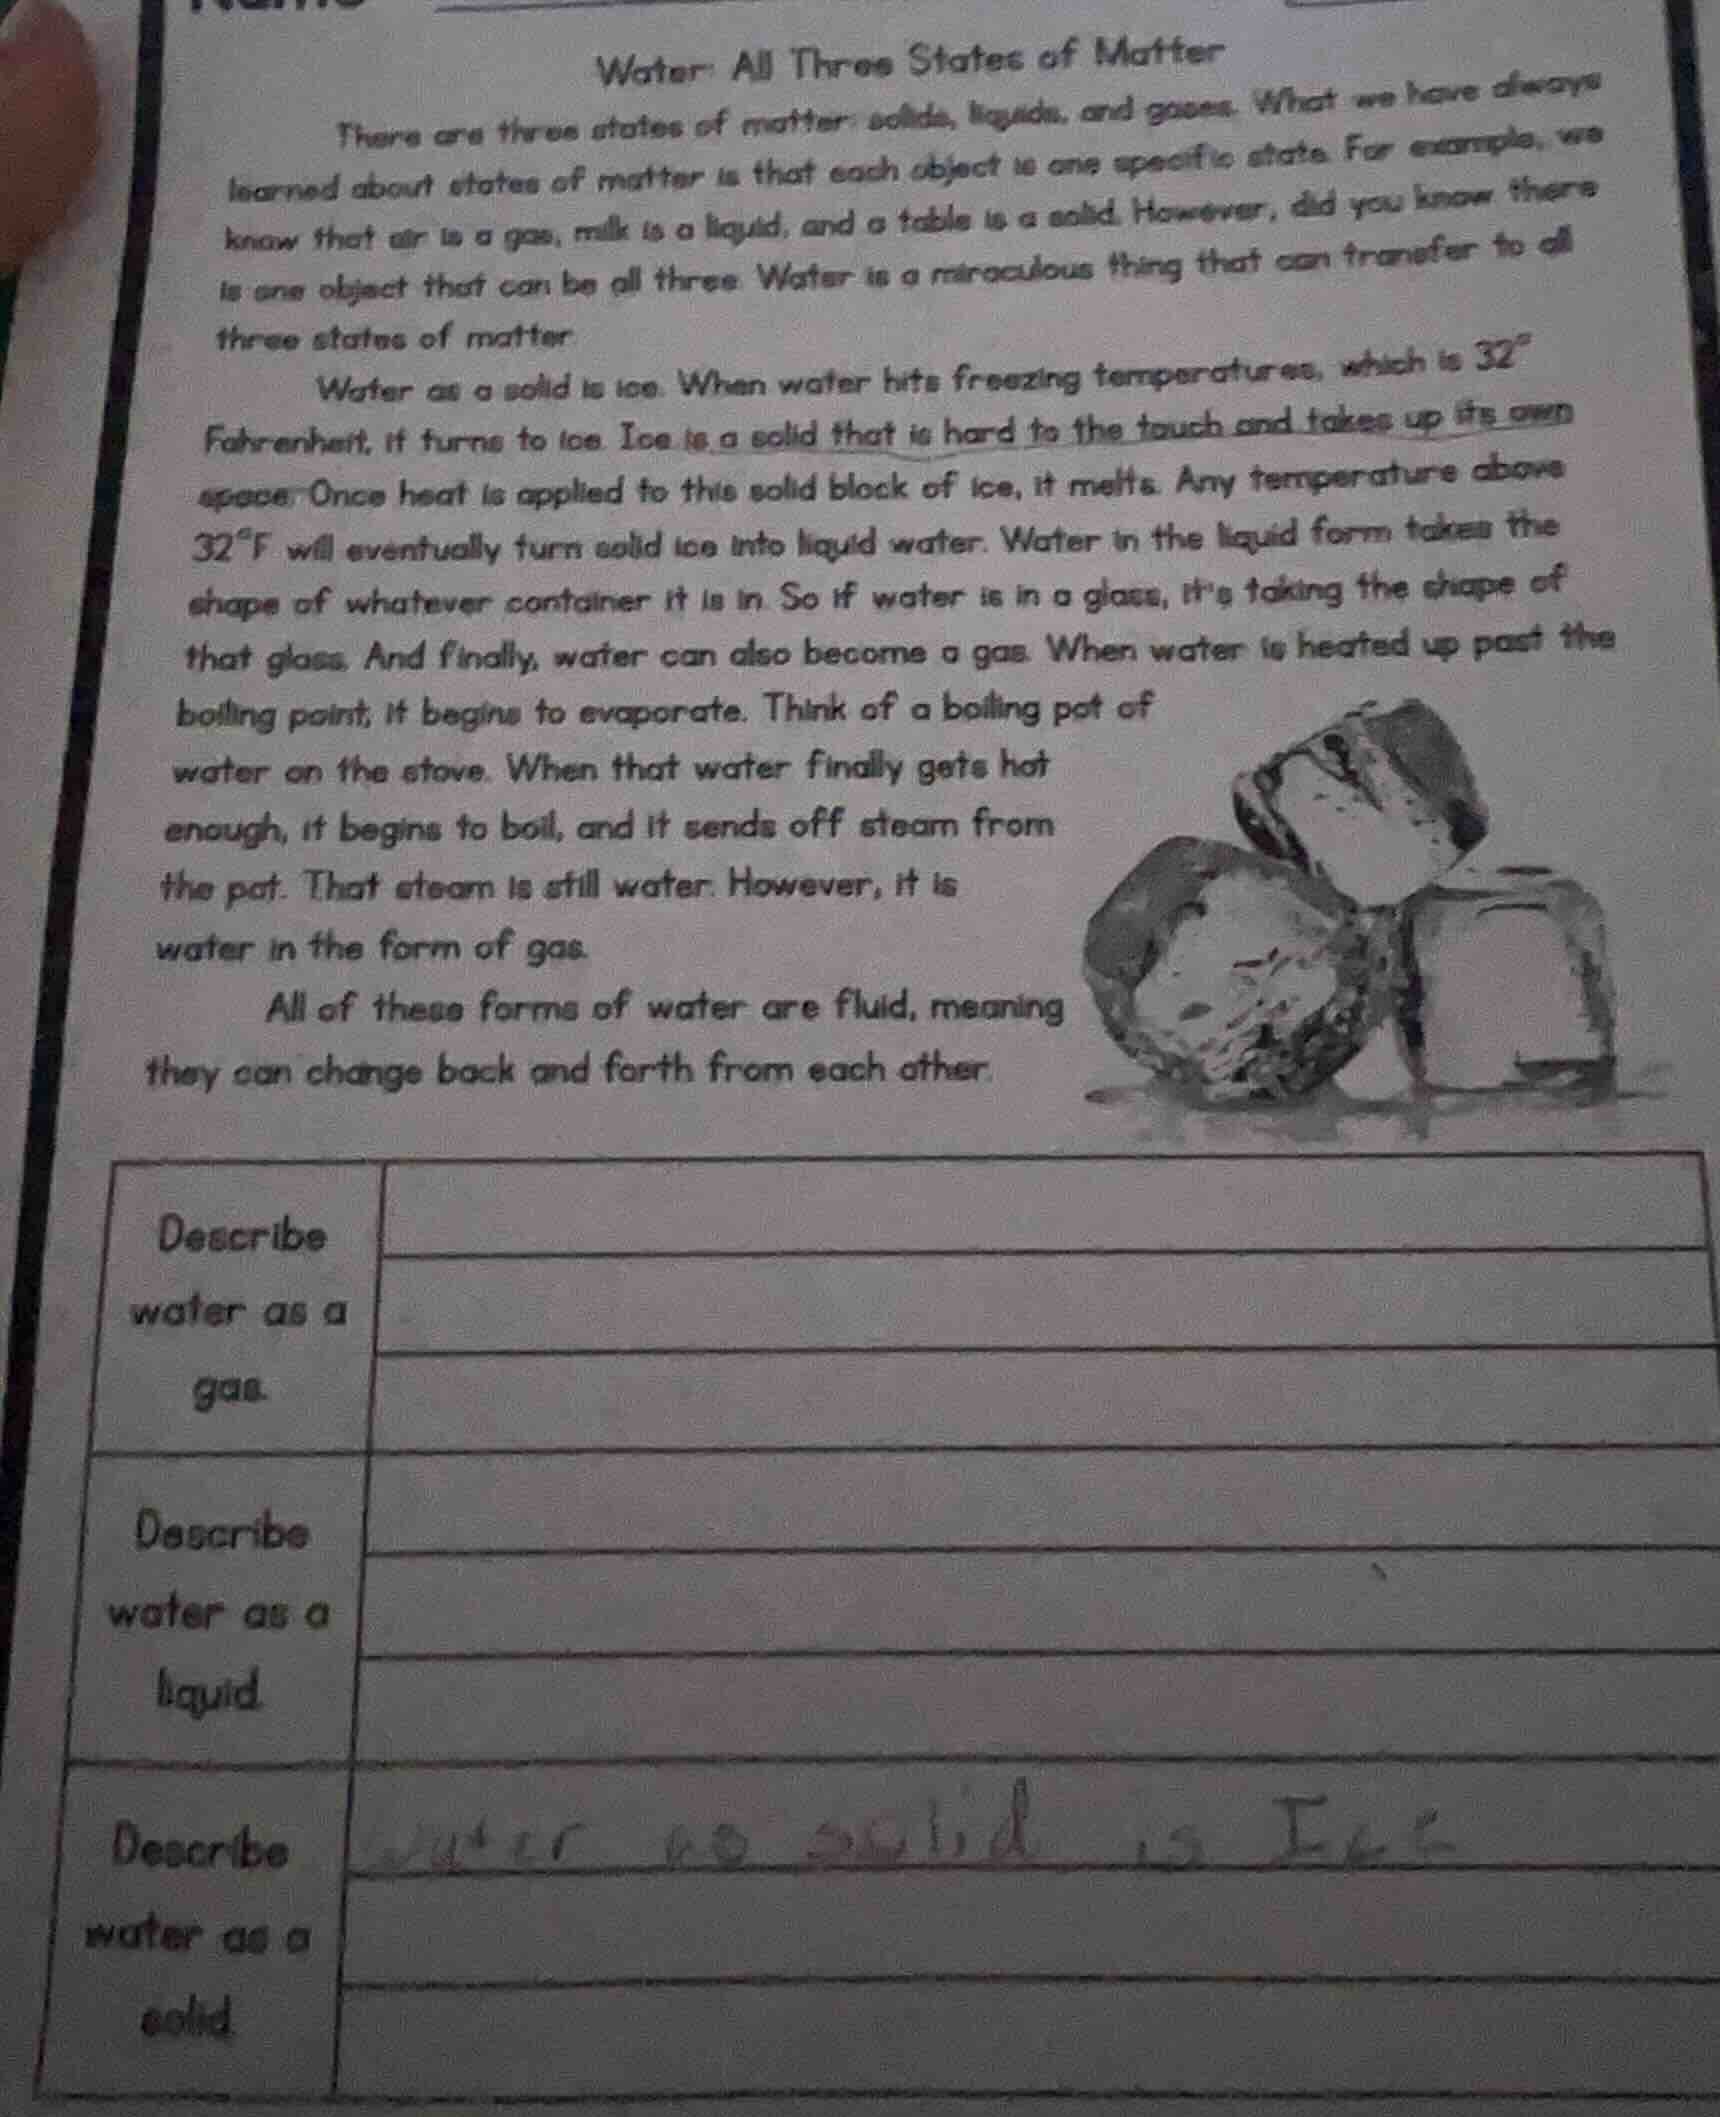 Name
Water: All Three States of Matter
There are three states of matter: solids, liquids, and gases. What we have always
learned about states of matter is that each object is one specific state. For example, we
know that air is a gas, milk is a liquid, and a table is a solid. However, did you know there
is one object that can be all three. Water is a miraculous thing that can transfer to all
three states of matter.
Water as a solid is ice. When water hits freezing temperatures, which is 32°
Fahrenheit, it turns to ice. Ice is a solid that is hard to the touch and takes up its own
space. Once heat is applied to this solid block of ice, it melts. Any temperature above
32°F will eventually turn solid ice into liquid water. Water in the liquid form takes the
shape of whatever container it is in. So if water is in a glass, it's taking the shape of
that glass. And finally, water can also become a gas. When water is heated up past the
boiling point, it begins to evaporate. Think of a boiling pot of
water on the stove. When that water finally gets hot
enough, it begins to boil, and it sends off steam from
the pot. That steam is still water. However, it is
water in the form of gas.
All of these forms of water are fluid, meaning
they can change back and forth from each other.
Describe
water as a
gas.
Describe
water as a
liquid.
Describe
water as a
solid.
Water as solid is Ice